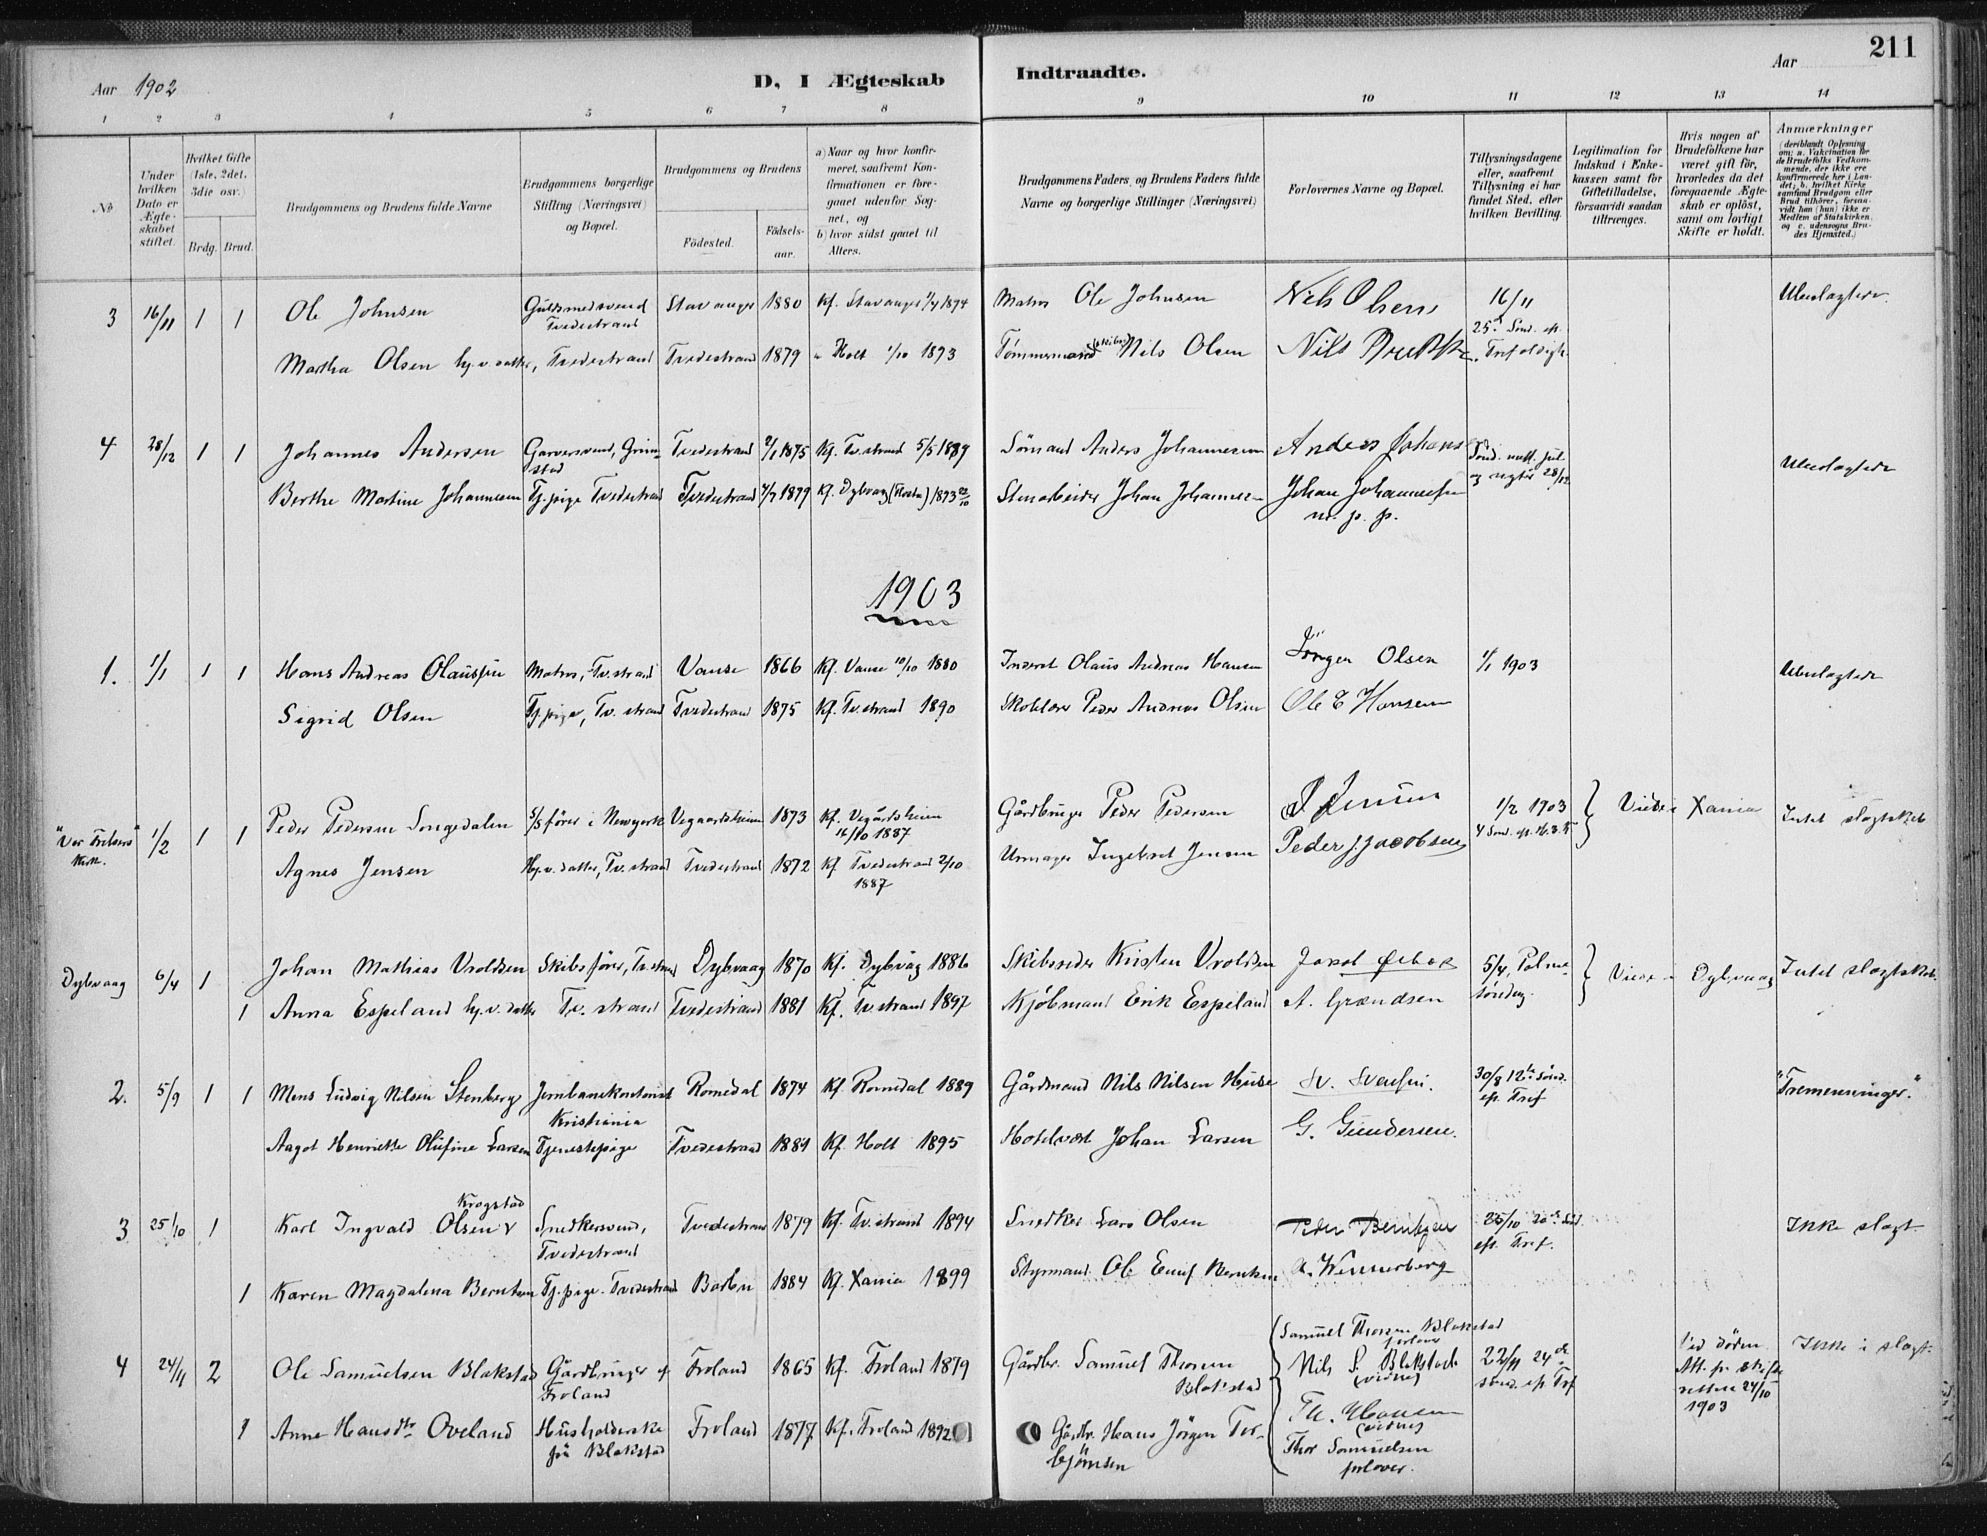 211
Aar 1902
D, I Ægteskab
Indtraadte.
Aar
1 2 3 4 5 6 7 8 9 10 11 12 13 14
No
Under hvilken Dato er Ægteskabet stiftet.
Hvilket Gifte (1ste, 2det, 3die osv.)
Brdg. Brud.
Brudgommens og Brudens fulde Navne
Brudgommens borgerlige Stilling (Næringsvei) og Bopæl.
Brudgommens og Brudens
Fødested.
Fødselsaar.
a) Naar og hvor konfirmeret, saafremt Konfirmationen er foregaaet udenfor Sognet, og
b) hvor sidst gaaet til Alters.
Brudgommens Faders og Brudens Faders fulde Navne og borgerlige Stillinger (Næringsvei)
Forlovernes Navne og Bopæl.
Tillysningsdagene eller, saafremt Tillysning ei har fundet Sted, efter hvilken Bevilling.
Legitimation for Indskud i Enkekassen samt for Giftetilladelse, forsaavidt saadan tiltrænges.
Hvis nogen af Brudefolkene har været gift før, hvorledes da det foregaaende Ægteskab er opløst, samt om lovligt Skifte er holdt.
Anmærkninger
(deriblandt Oplysning om: a. Vakcination for de Brudefolks Vedkommende, der ikke ere konfirmerede her i Landet; b. hvilket Kirkesamfund Brudgom eller Brud tilhører, forsaavidt han (hun) ikke er Medlem af Statskirken, og c. udensogns Brudes Hjemsted.)
3 16/11 1 1 Ole Johnsen Guldsmedsvend Tvedestrand Stavanger 1880 Kf. Stavanger 1894 Matros Ole Johnsen Nels Olsen 16/11 Ubeslægtede.
Martha Olsen hj.v. datter, Tvedestrand Tvedestrand 1879 " Holt 1/10 1893 Tømmermand Nils Olsen Nils 25de Sønd. ef. Trefoldigh.
4 28/12 1 1 Johannes Andersen Garversvend, Grimstad Tvedestrand 1875 Kf. Tv.strand 5/5 1889 Sømand Anders Johannesen Anders Johans Sønd. mell. jul og nytår 28/12 Ubeslægtede
Berthe Martine Johannesen Tj.pige Tvedestrand Tvedestrand 1879 Kf. Dybvaag 1893 Stenarbeider Johan Johannesen Johan Johannesen
m. p. p.
1903
1. 1/1 1 1 Hans Andreas Olaussen Matros, Tv.strand Vanse 1866 Kf. Vanse 10/10 1880 Inderst Olaus Andreas Hansen Jörgen Olsen 1/1 1903 Ubeslægtede
Sigrid Olsen Tj.pige, Tv. strand Tvedestrand 1875 Kf. Tv.strand 1890 Peder Andreas Olsen Ole E Hansen
"Vor Frelsers" Kirk. 1/2 1 1 Peder Pedersen Songedalen fører i Newyork Vegaardsheien 1873 Kf. Vegårdsheien 16/10 1887 Gårdbruger Peder Pedersen J Jensen 1/2 1903 Viede i Xania Intet slægtskab
Agnes Jensen Hj.v. datter, Tv. strand Tvedestrand 1872 Kf Tvedestrand 2/10 1887 Urmager Ingebret Jensen Peder J. Jacobsen
Dybvaag 6/4 1 Johan Mathias Vroldsen Skibsfører, Tv.strand Dybvaag 1870 Kf. Dybvåg 1886 Skibsreder Kristen Vroldsen 5/4, Palmesøndag. Viede i Dybvaag Intet slægtskab
1 Anna Espeland hj.v. datter Tv. strand Tvedestrand 1881 Kf. Tv.strand 1897 Kjøbmand Erik Espeland A. Grændsen
2. 5/9 1 1 Mens Ludvig Nilsen Stenberg Jernbanekontorist Kristiania Romedal 1874 Kf. Romedal 1889 Gårdmand Nils Nilsen Huse Sv. Svensen. 30/8 12te Sønd. ef. Tref "Tremenninger."
Aagot Henriette Olufine Larsen Tjenestepige Tvedestrand 1881 Kf. Holt 1895 Hotelvært Johan Larsen G. Gundersen.
3 25/10 1 Karl Ingvald Olsen Krogstad Snedkersvend, Tvedestrand Tvedestrand 1879 Kf. Tv.strand 1894 Snedker Lars Olsen Peder Berntzen 25/10 20de Sønd eft. Tref. Ikke slægt.
1 Karen Magdalena Berntsen Tj.pige. Tvedestrand Barbu 1884 Kf. Xania 1899 Styrmand Ole Berntsen A. Wennerberg
4 24/11 2 Ole Samuelsen Blakstad Gårdbruger af Froland Froland 1865 Kf. Froland 1879 Gårdbr. Samuel Thorsen Blakstad Samuel Thorsen Blakstad forlover 22/11 24de sønd. ef. Tref Ved døden Att. fr. skifteretten 24/10 1903 Ikke i slægt.
Nils S. Blakstad (vidne)
1 Anne Hansdtr Oveland Husholderske på Blakstad Froland 1877 Kf. Froland 1892 Gårdbr. Hans Jörgen Torbjörnsen Th. Hansen (vidne)
Thor Samuelsen forlover.